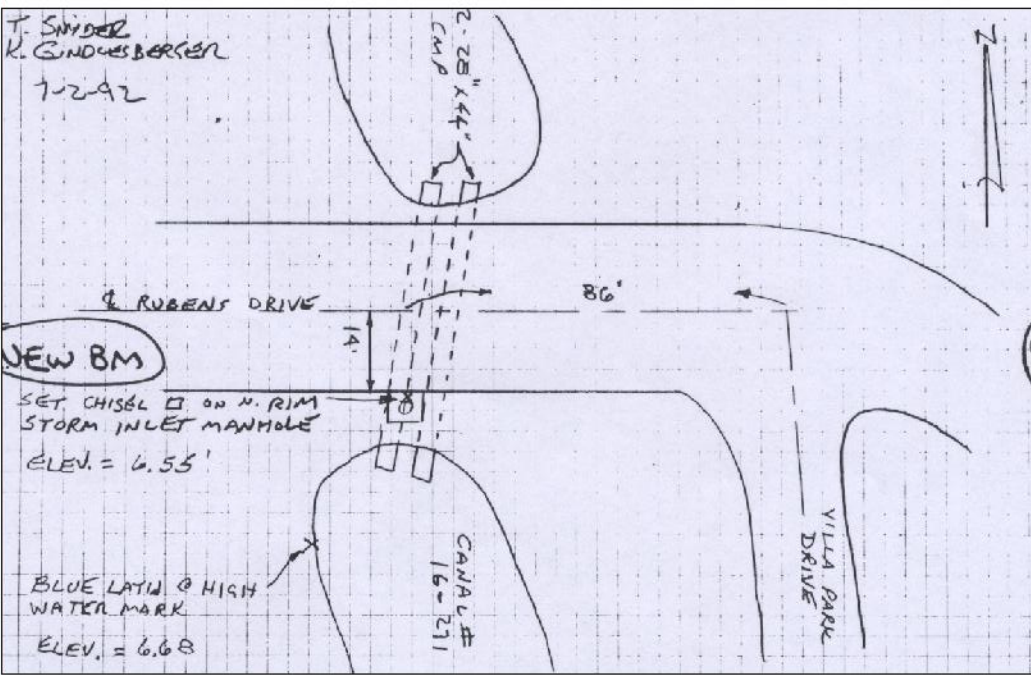 T. SNYDER
K. GINDLESBERGER
7-2-92
2-28" X 44'
CMP
N
℄ RUBENS DRIVE
86'
14'
NEW BM
SET CHISEL □ ON N. RIM
STORM INLET MANHOLE
ELEV. = 6.55'
BLUE LATH @ HIGH
WATER MARK
ELEV. = 6.68
CANAL #
16-271
VILLA PARK
DRIVE